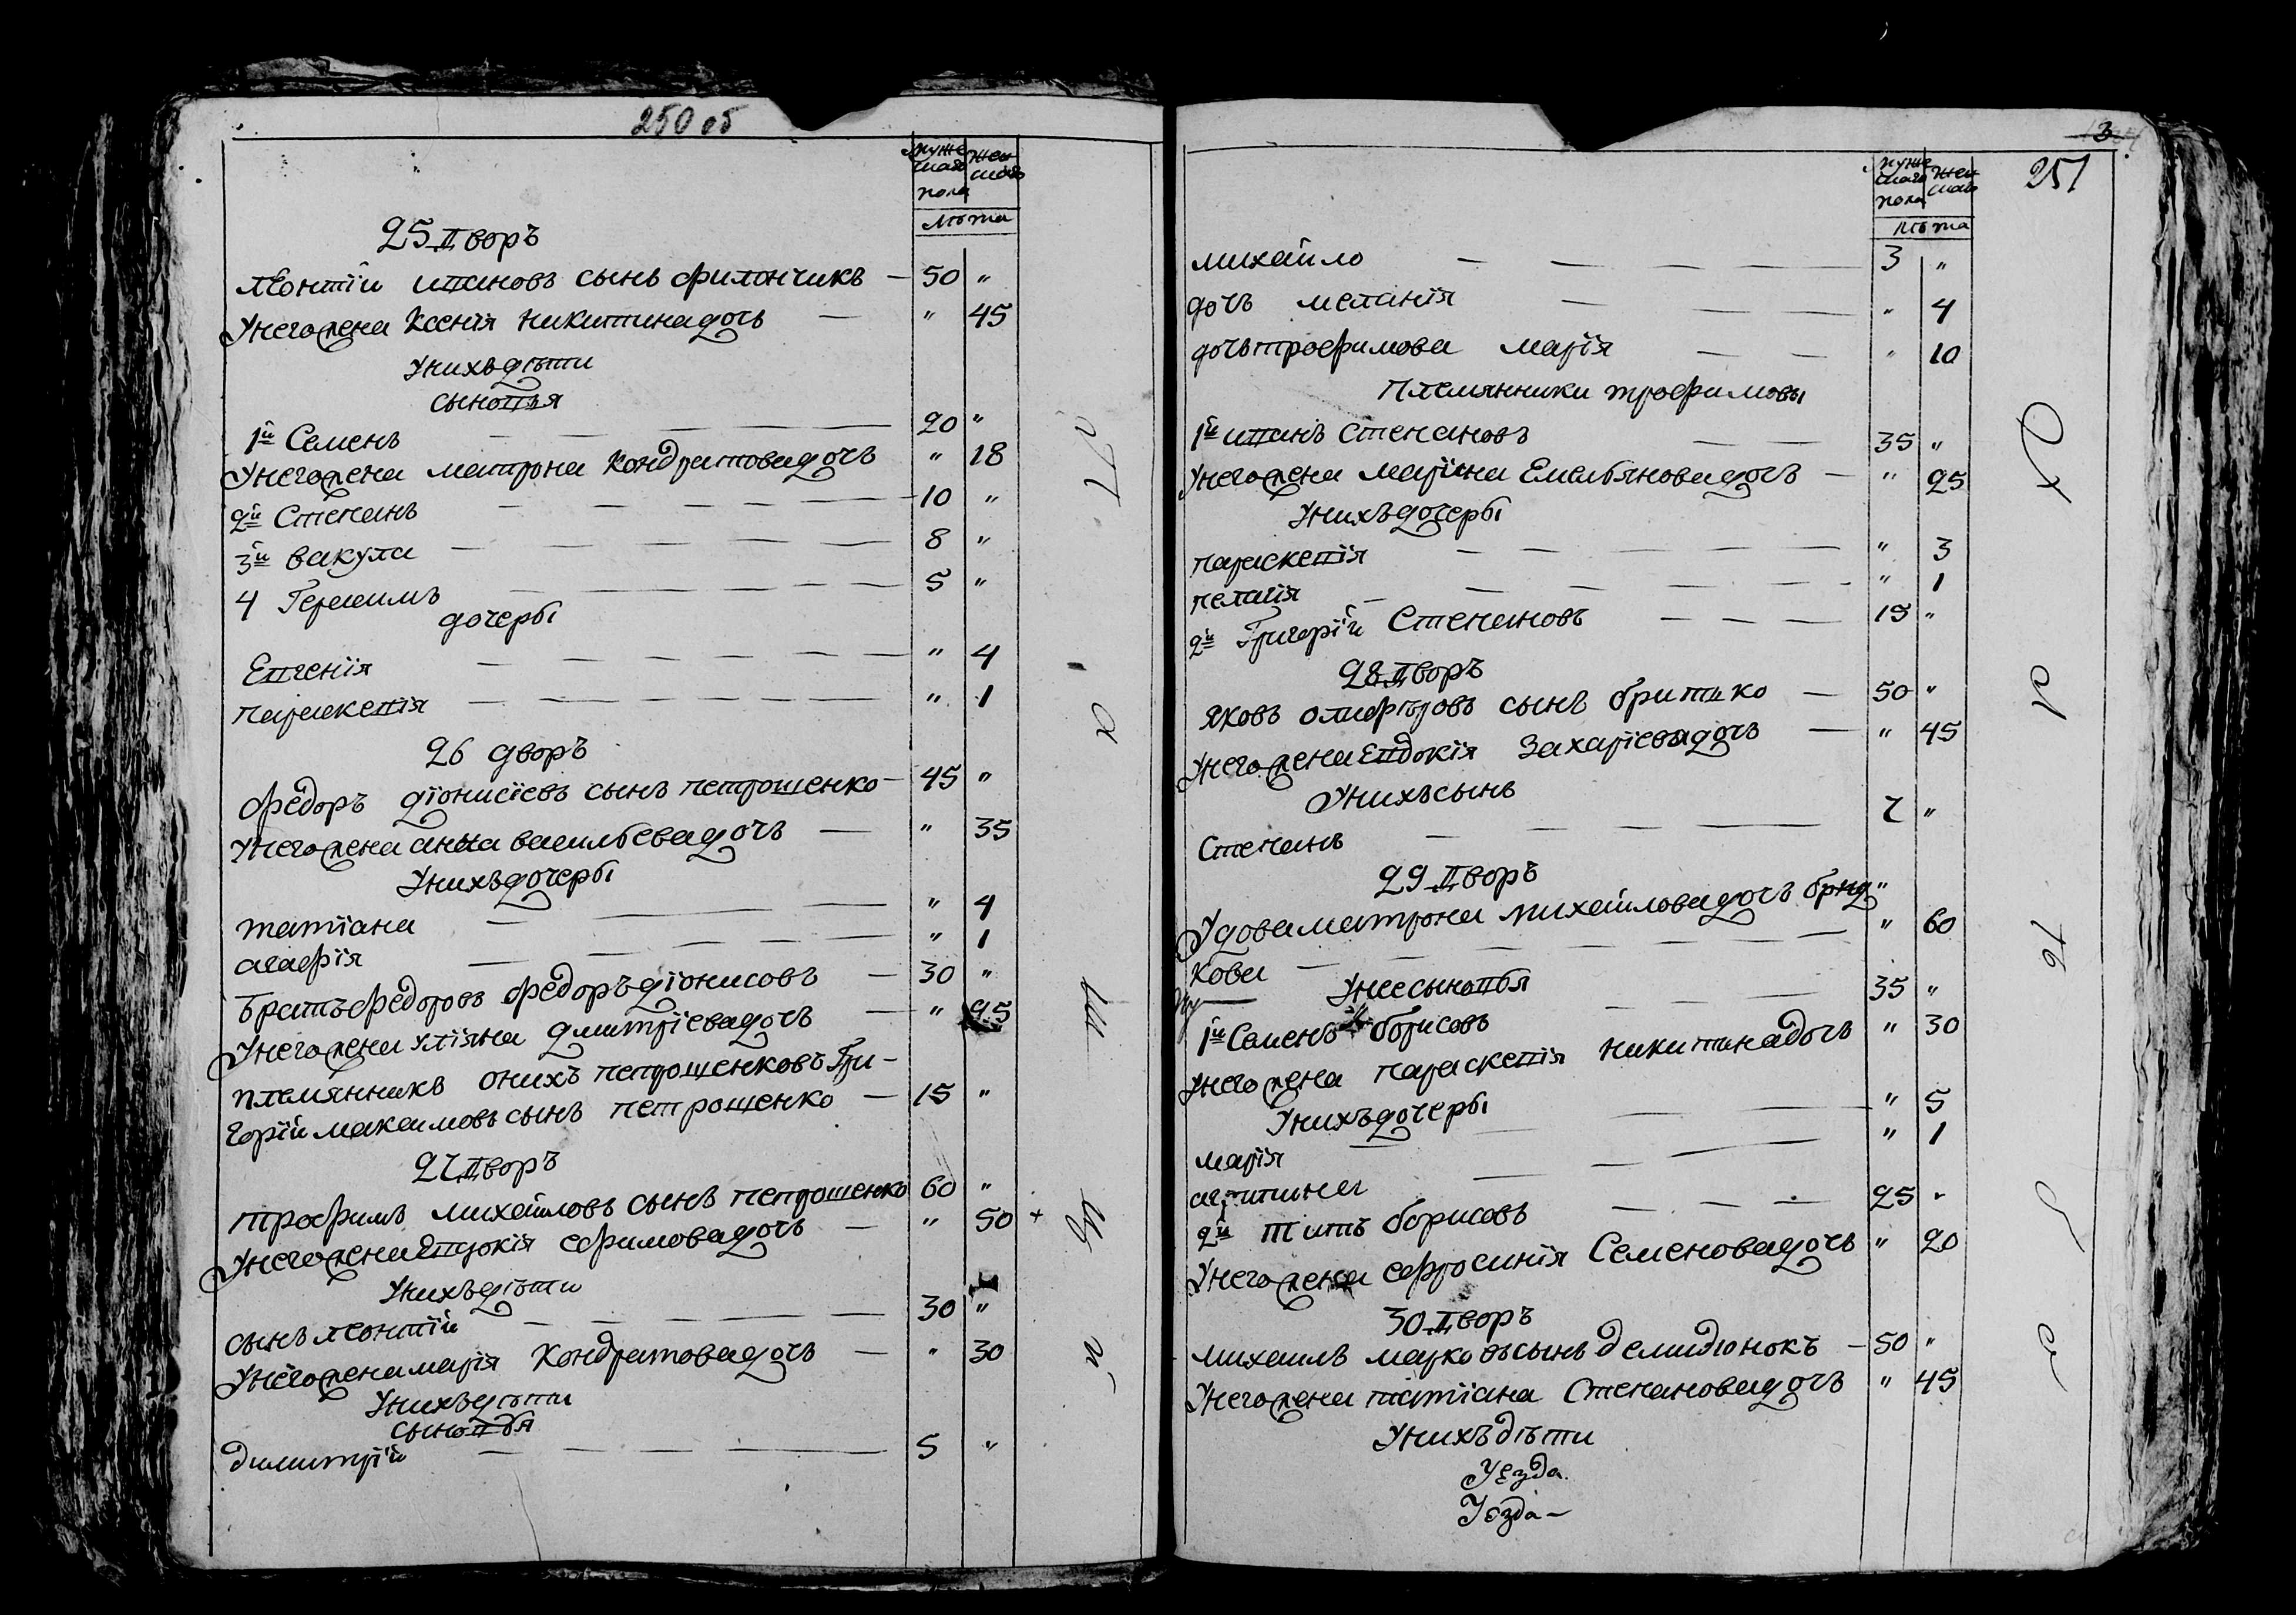 250 об
мужескаго пола женскаго
лѣта
25 дворъ
Леонтій ивановъ сынъ филончикъ — 50 "
У него жена Ксенія никитина дочь — " 45
У нихъ дѣти
сыновья
1й Семенъ 20 "
У него жена матрона Кондратова дочь " 18
2й Степанъ 10 "
3й вакула 8 "
4 Герасимъ 5 "
дочеры
Евгенія " 4
параскевія " 1
26 дворъ
Федоръ діонисіевъ сынъ петрошенко 45 "
У него жена анна васильева дочь — " 35
У нихъ дочеры
татіана " 4
агафія " 1
Братъ федоровъ федоръ діонисовъ — 30 "
У него жена уліяна дмитріева дочь — " 25
племянникъ онихъ петрошенковъ Гри-
горій максимовъ сынъ петрошенко — 15 "
27 дворъ
Трофимъ михайловъ сынъ петрошенко 60 "
У него жена Евдокія ефимова дочь — " 50 +
У нихъ дѣти
сынъ леонтій 30 "
У него жена марія Кондратова дочь — " 30
У нихъ дѣти
сыновья
димитрій 5 "
251
мужескаго пола женскаго
лѣта
михайло 3 "
дочь меланія " 4
дочь трофимова марія " 10
Племянники трофимовы
1й иванъ Степановъ 35 "
У него жена маріяна Емельянова дочь — " 25
У нихъ дочеры
параскевія " 3
пелагія " 1
2й Григорій Степановъ 15 "
28 дворъ
Яковъ олиферовъ сынъ бритько — 50 "
У него жена Евдокія Захаріева дочь — " 45
У нихъ сынъ
Степанъ 7 "
29 дворъ
Удова матрона михайлова дочь брид "
кова — " 60
У нее сыновья
1й Семенъ борисовъ 35 "
У него жена параскевія никитина дочь " 30
У нихъ дочеры
марія " 5
агриппина " 1
2й титъ борисовъ 25 "
У него жена ефросинія Семенова дочь " 20
30 дворъ
михаилъ марковъ сынъ демидіонокъ — 50 "
У него жена татіана Степанова дочь " 45
У нихъ дѣти
Уезда
Уезда —